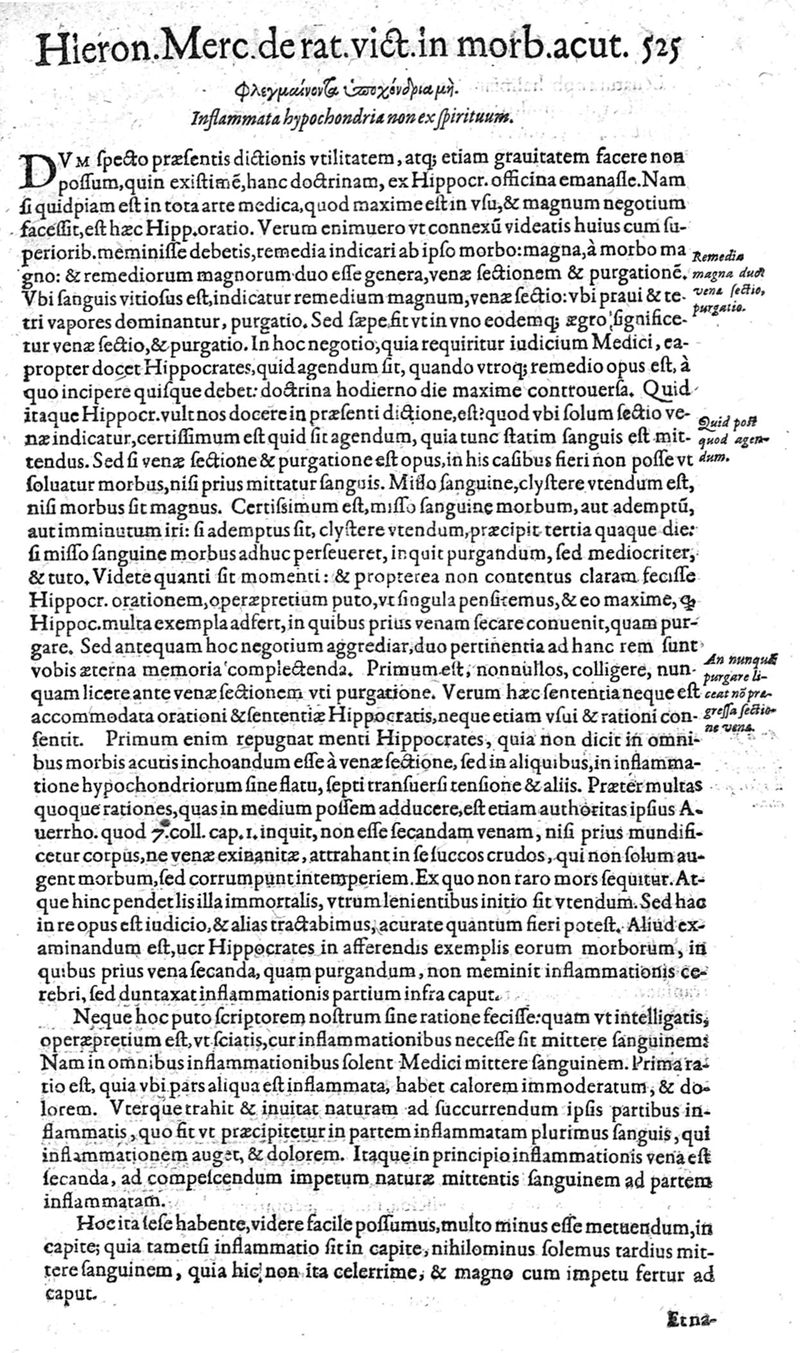 Hieron.Merc.de rat.vict.in morb.acut. 525
Φλεγμαίνοντα ὑποχόνδρια μὴ.
Inflammata hypochondria non ex spirituum.
DVM specto præsentis dictionis vtilitatem, atq; etiam grauitatem facere non
possum, quin existimē, hanc doctrinam, ex Hippocr. officina emanasse. Nam
si quidpiam est in tota arte medica, quod maxime est in vsu, & magnum negotium
facessit, est hæc Hipp. oratio. Verum enimuero vt connexū videatis huius cum su-
periorib. meminisse debetis, remedia indicari ab ipso morbo: magna, à morbo ma
gno: & remediorum magnorum duo esse genera, venæ sectionem & purgationē.
Vbi sanguis vitiosus est, indicatur remedium magnum, venæ sectio: vbi praui & te-
tri vapores dominantur, purgatio. Sed sæpe fit vt in vno eodemq; ægro significe-
tur venæ sectio, & purgatio. In hoc negotio, quia requiritur iudicium Medici, ea-
propter docet Hippocrates, quid agendum sit, quando vtroq; remedio opus est, à
quo incipere quisque debet: doctrina hodierno die maxime controuersa. Quid
itaque Hippocr. vult nos docere in præsenti dictione, est: quod vbi solum sectio ve-
næ indicatur, certissimum est quid sit agendum, quia tunc statim sanguis est mit-
tendus. Sed si venæ sectione & purgatione est opus, in his casibus fieri non posse vt
soluatur morbus, nisi prius mittatur sanguis. Misso sanguine, clystere vtendum est,
nisi morbus sit magnus. Certissimum est, misso sanguine morbum, aut ademptū,
aut imminutum iri: si ademptus sit, clystere vtendum, præcipit tertia quaque die:
si misso sanguine morbus adhuc perseueret, inquit purgandum, sed mediocriter,
& tuto. Videte quanti sit momenti: & propterea non contentus claram fecisse
Hippocr. orationem, operæpretium puto, vt singula pensitemus, & eo maxime, ꝙ
Hippoc. multa exempla adfert, in quibus prius venam secare conuenit, quam pur-
gare. Sed antequam hoc negotium aggrediar, duo pertinentia ad hanc rem sunt
vobis æterna memoria complectenda. Primum est, nonnullos, colligere, nun-
quam licere ante venæ sectionem vti purgatione. Verum hæc sententia neque est
accommodata orationi & sententiæ Hippocratis, neque etiam vsui & rationi con-
sentit. Primum enim repugnat menti Hippocrates, quia non dicit in omni-
bus morbis acutis inchoandum esse à venæ sectione, sed in aliquibus, in inflamma-
tione hypochondriorum sine flatu, septi transuersi tensione & aliis. Præter multas
quoque rationes, quas in medium possem adducere, est etiam authoritas ipsius A-
uerrho. quod 7. coll. cap. 1. inquit, non esse secandam venam, nisi prius mundifi-
cetur corpus, ne venæ exinanitæ, attrahant in se succos crudos, qui non solum au-
gent morbum, sed corrumpunt intemperiem. Ex quo non raro mors sequitur. At-
que hinc pendet lis illa immortalis, vtrum lenientibus initio sit vtendum. Sed hac
in re opus est iudicio, & alias tractabimus, acurate quantum fieri potest. Aliud ex-
aminandum est, ucr Hippocrates in afferendis exemplis eorum morborum, in
quibus prius vena secanda, quam purgandum, non meminit inflammationis ce-
rebri, sed duntaxat inflammationis partium infra caput.
Neque hoc puto scriptorem nostrum sine ratione fecisse: quam vt intelligatis,
operæpretium est, vt sciatis, cur inflammationibus necesse sit mittere sanguinem:
Nam in omnibus inflammationibus solent Medici mittere sanguinem. Prima ra-
tio est, quia vbi pars aliqua est inflammata, habet calorem immoderatum, & do-
lorem. Vterque trahit & inuitat naturam ad succurrendum ipsis partibus in-
flammatis, quo fit vt præcipitetur in partem inflammatam plurimus sanguis, qui
inflammationem auget, & dolorem. Itaque in principio inflammationis vena est
secanda, ad compescendum impetum naturæ mittentis sanguinem ad partem
inflammatam.
Hoc ita sese habente, videre facile possumus, multo minus esse metuendum, in
capite; quia tametsi inflammatio sit in capite, nihilominus solemus tardius mit-
tere sanguinem, quia hic non ita celerrime, & magno cum impetu fertur ad
caput.
Etna-
Remedia
magna duo
vena sectio,
purgatio.
Quid post
quod agen-
dum.
An nunquā
purgare li-
ceat nō præ-
gressa sectio-
ne venæ.